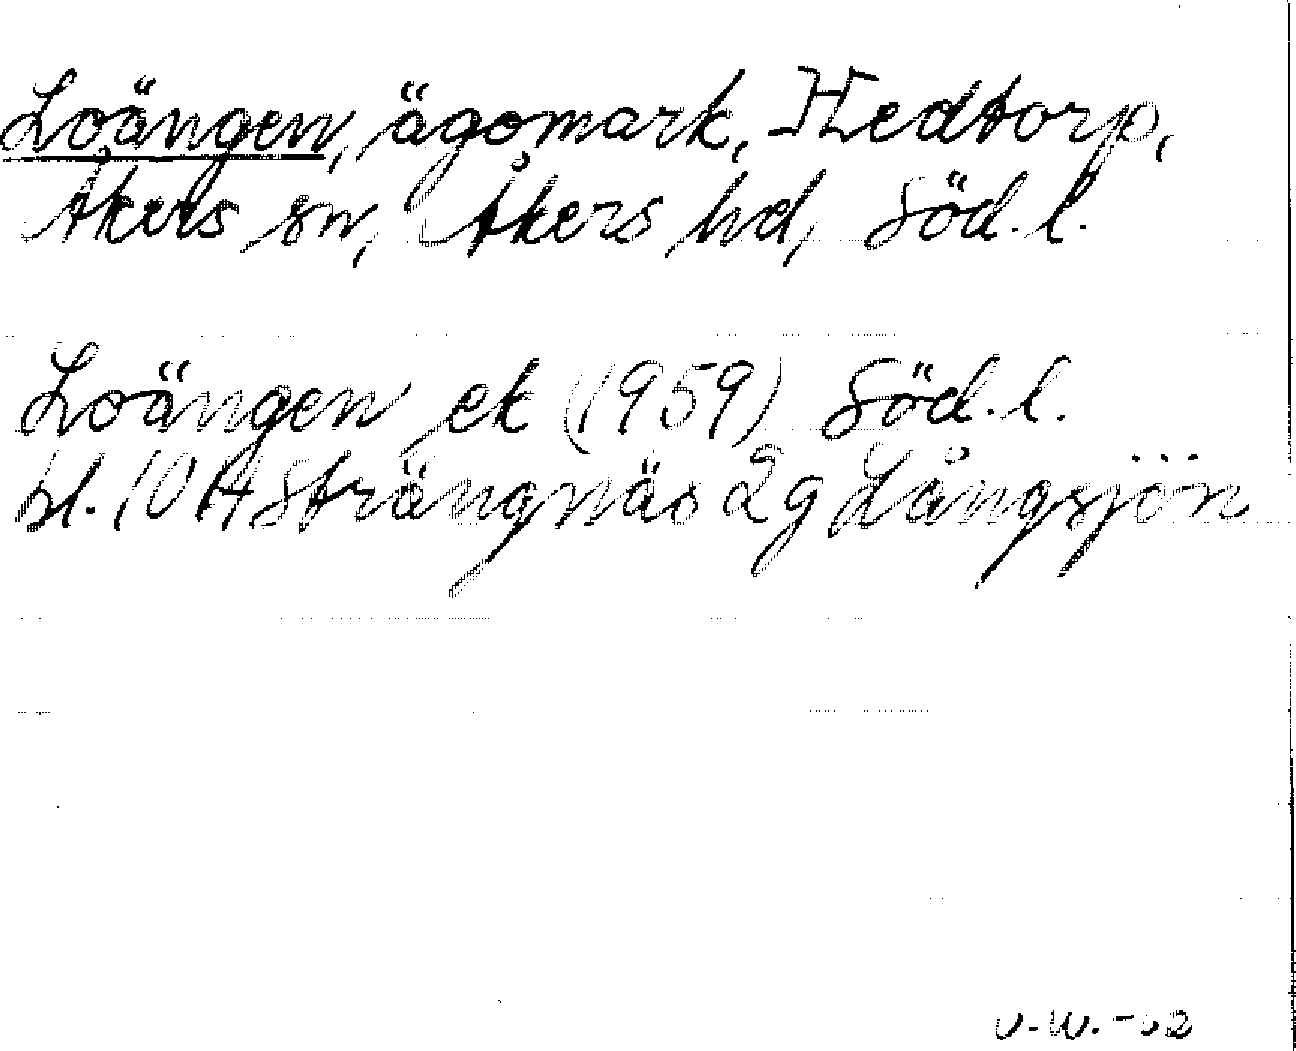 Loängen, ägomark, Hedtorp,
Åkers sn, Åkers hd, Söd. l.
Loängen ek (1959) Söd. l.
bl. 10 H Strängnäs 2g Långsjön